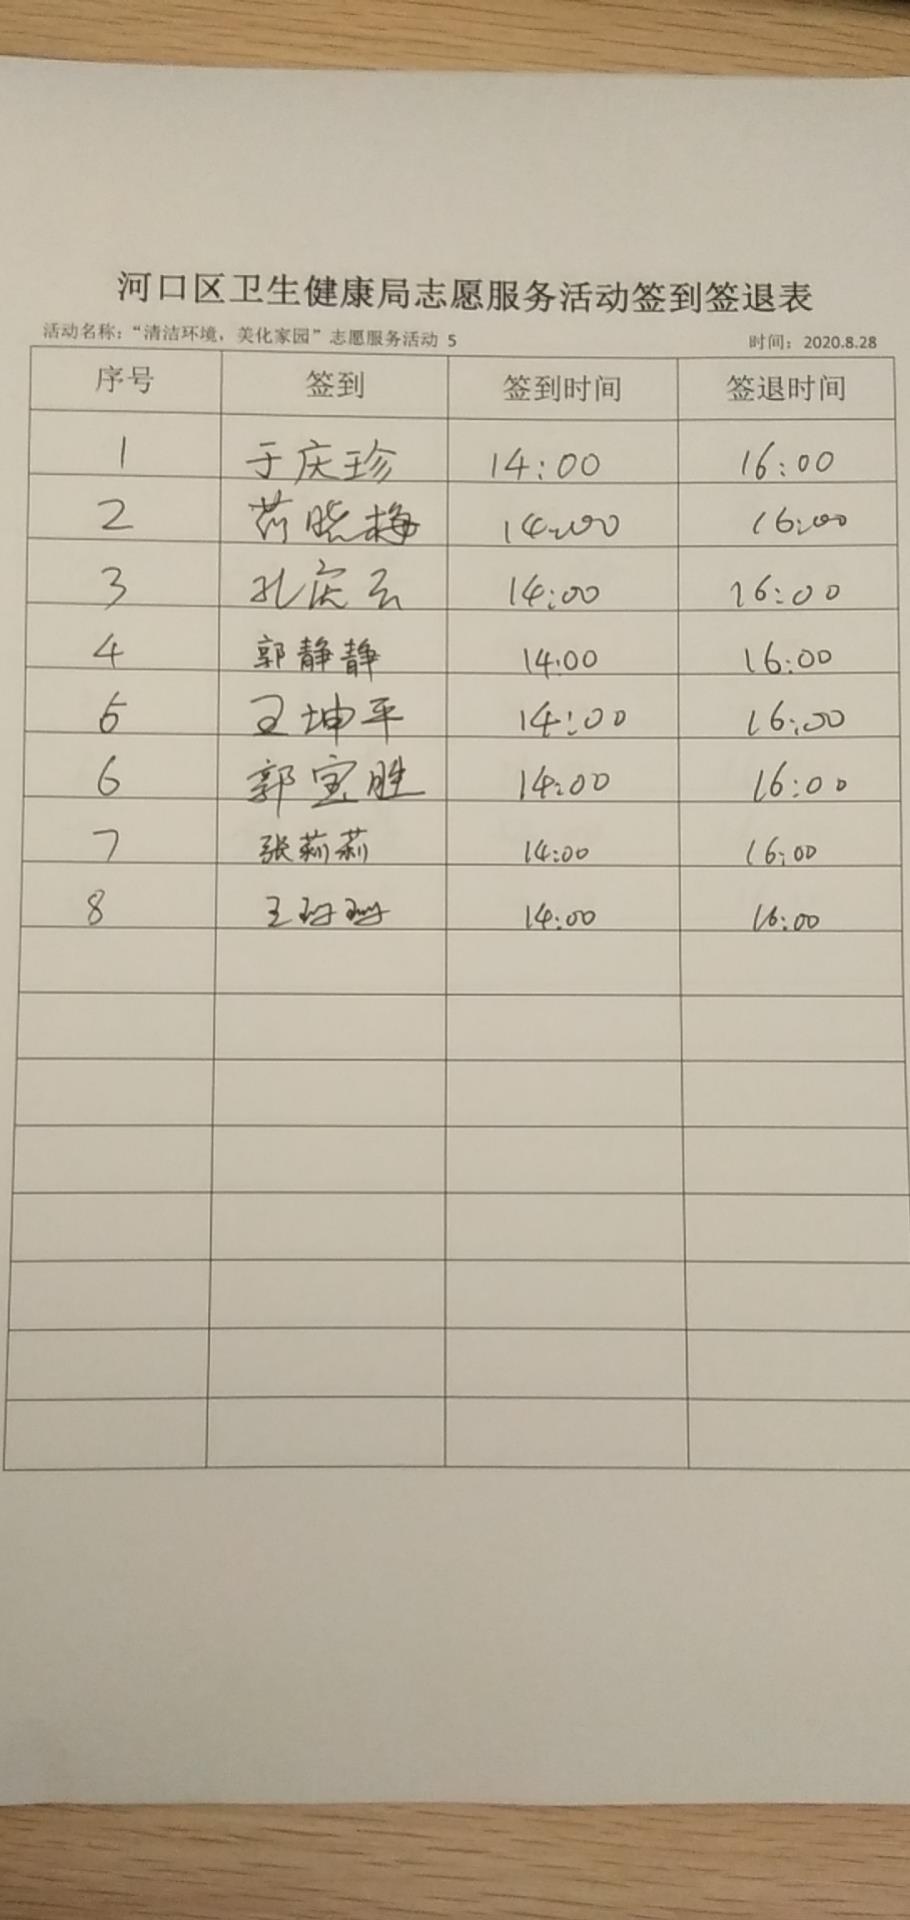 河口区卫生健康局志愿服务活动签到签退表
活动名称：“清洁环境，美化家园”志愿服务活动 5 时间：2020.8.28
序号 签到 签到时间 签退时间
1 于庆珍 14:00 16:00
2 晓梅 14:00 16:00
3 孔庆云 14:00 16:00
4 郭静静 14:00 16:00
5 王坤平 14:00 16:00
6 郭宝胜 14:00 16:00
7 张莉莉 14:00 16:00
8 王珊珊 14:00 16:00